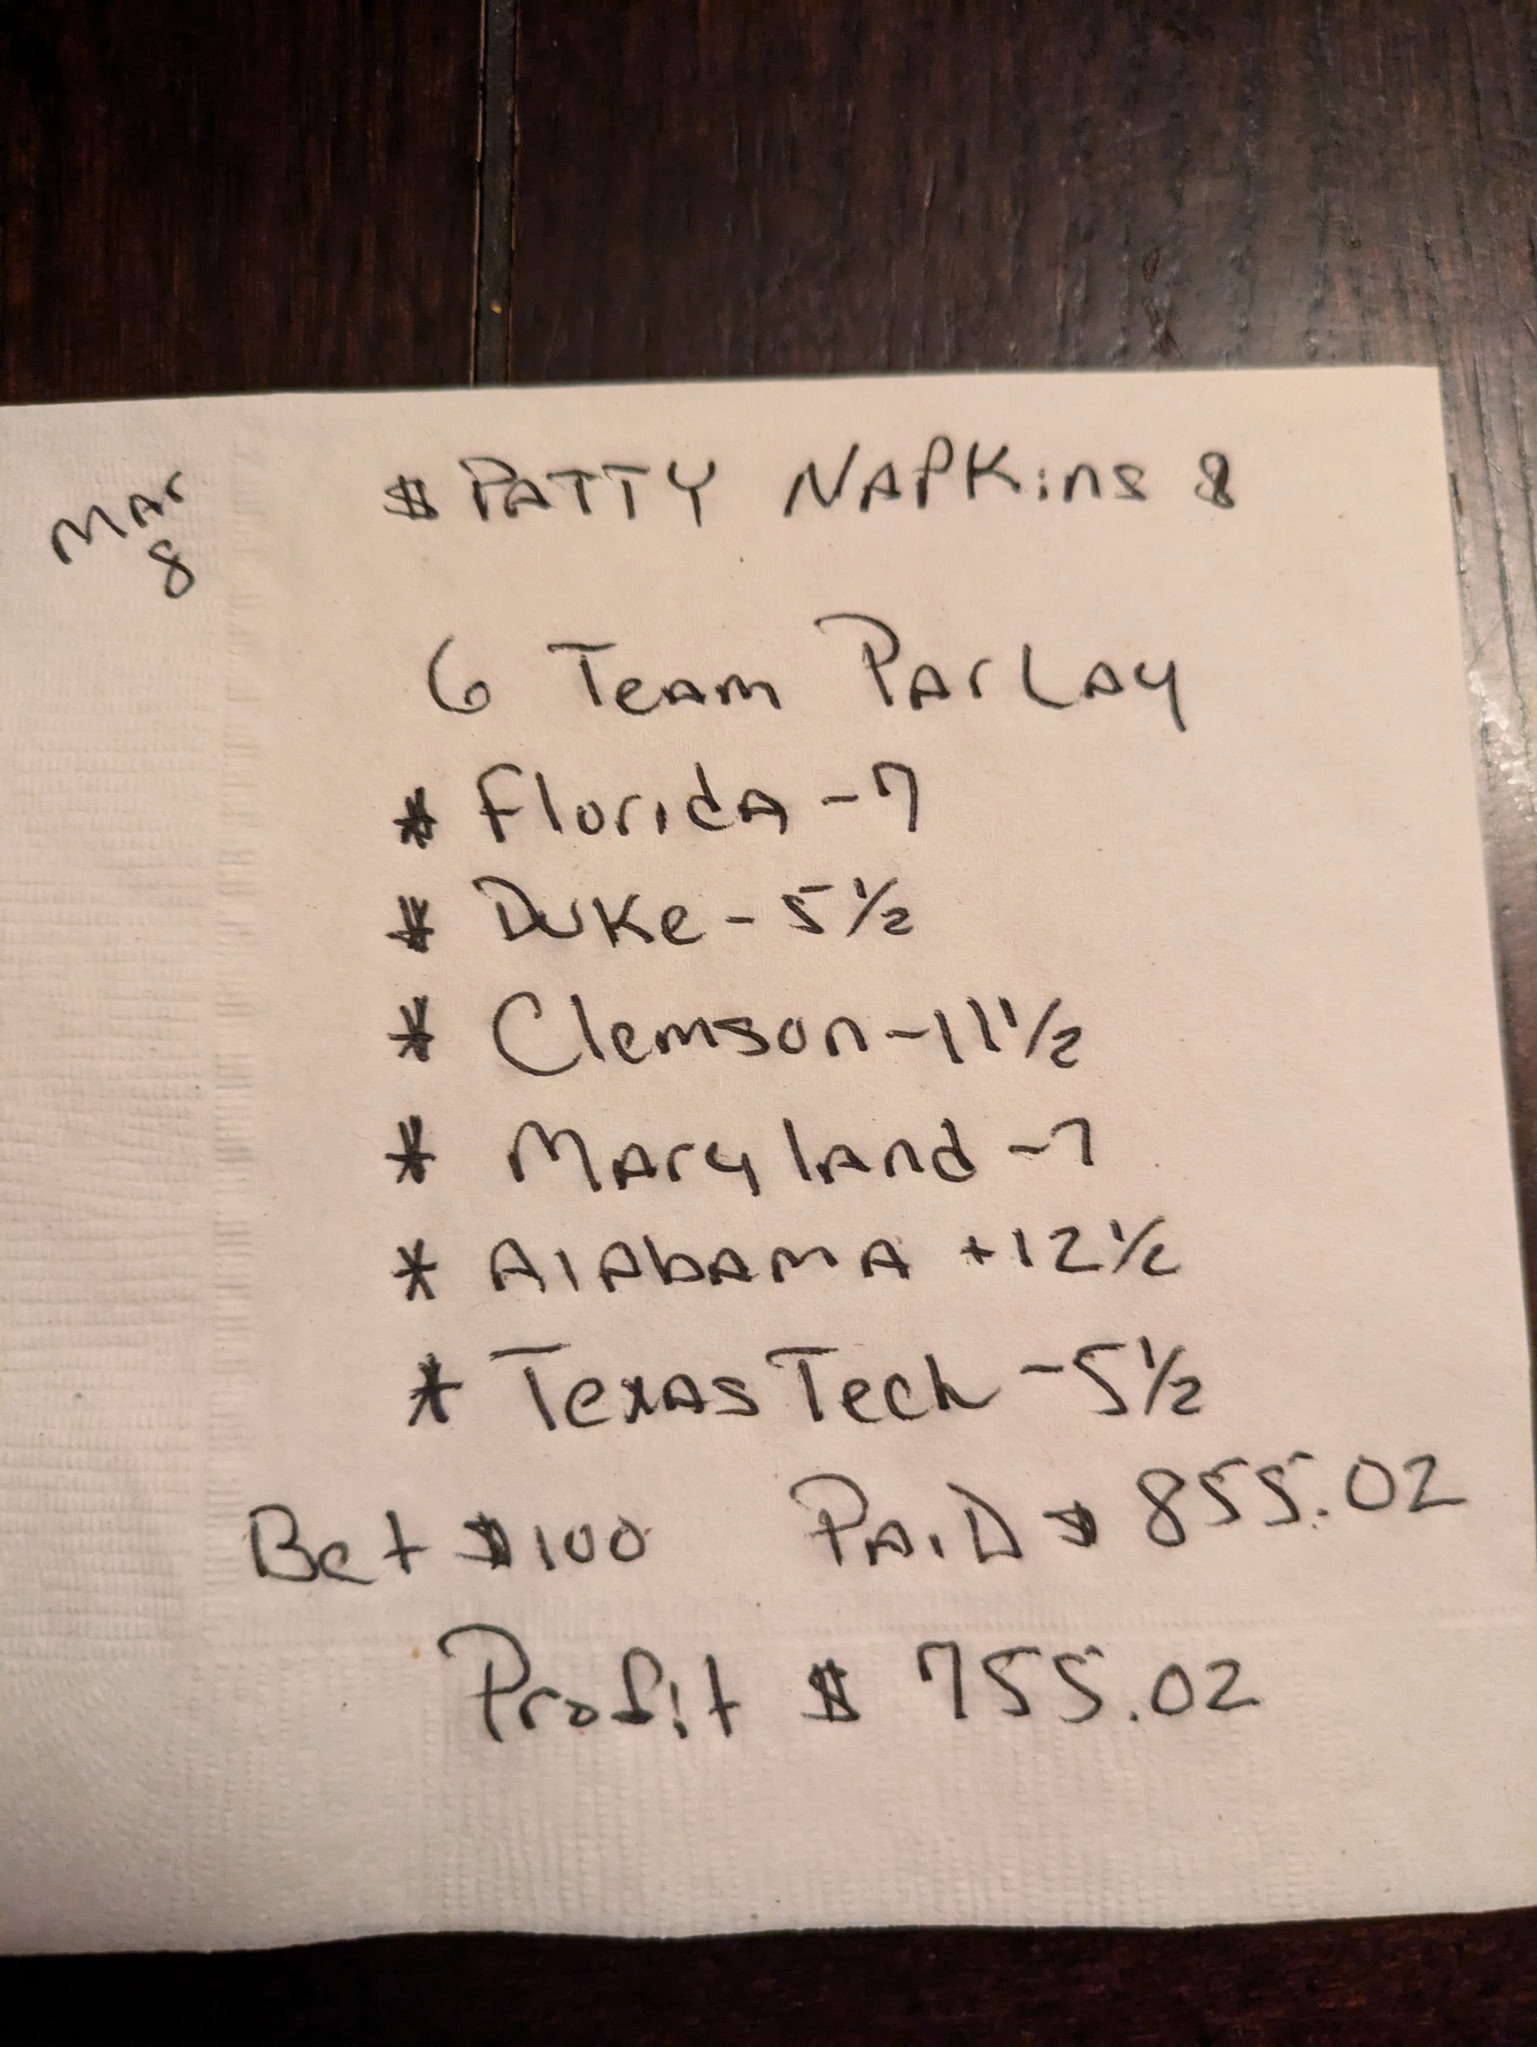 Mar
8
$ PATTY NAPKINS $
6 Team Parlay
* Florida -7
* Duke -5 1/2
* Clemson -11 1/2
* Maryland -7
* Alabama +12 1/2
* Texas Tech -5 1/2
Bet $100 PAID $855.02
Profit $755.02